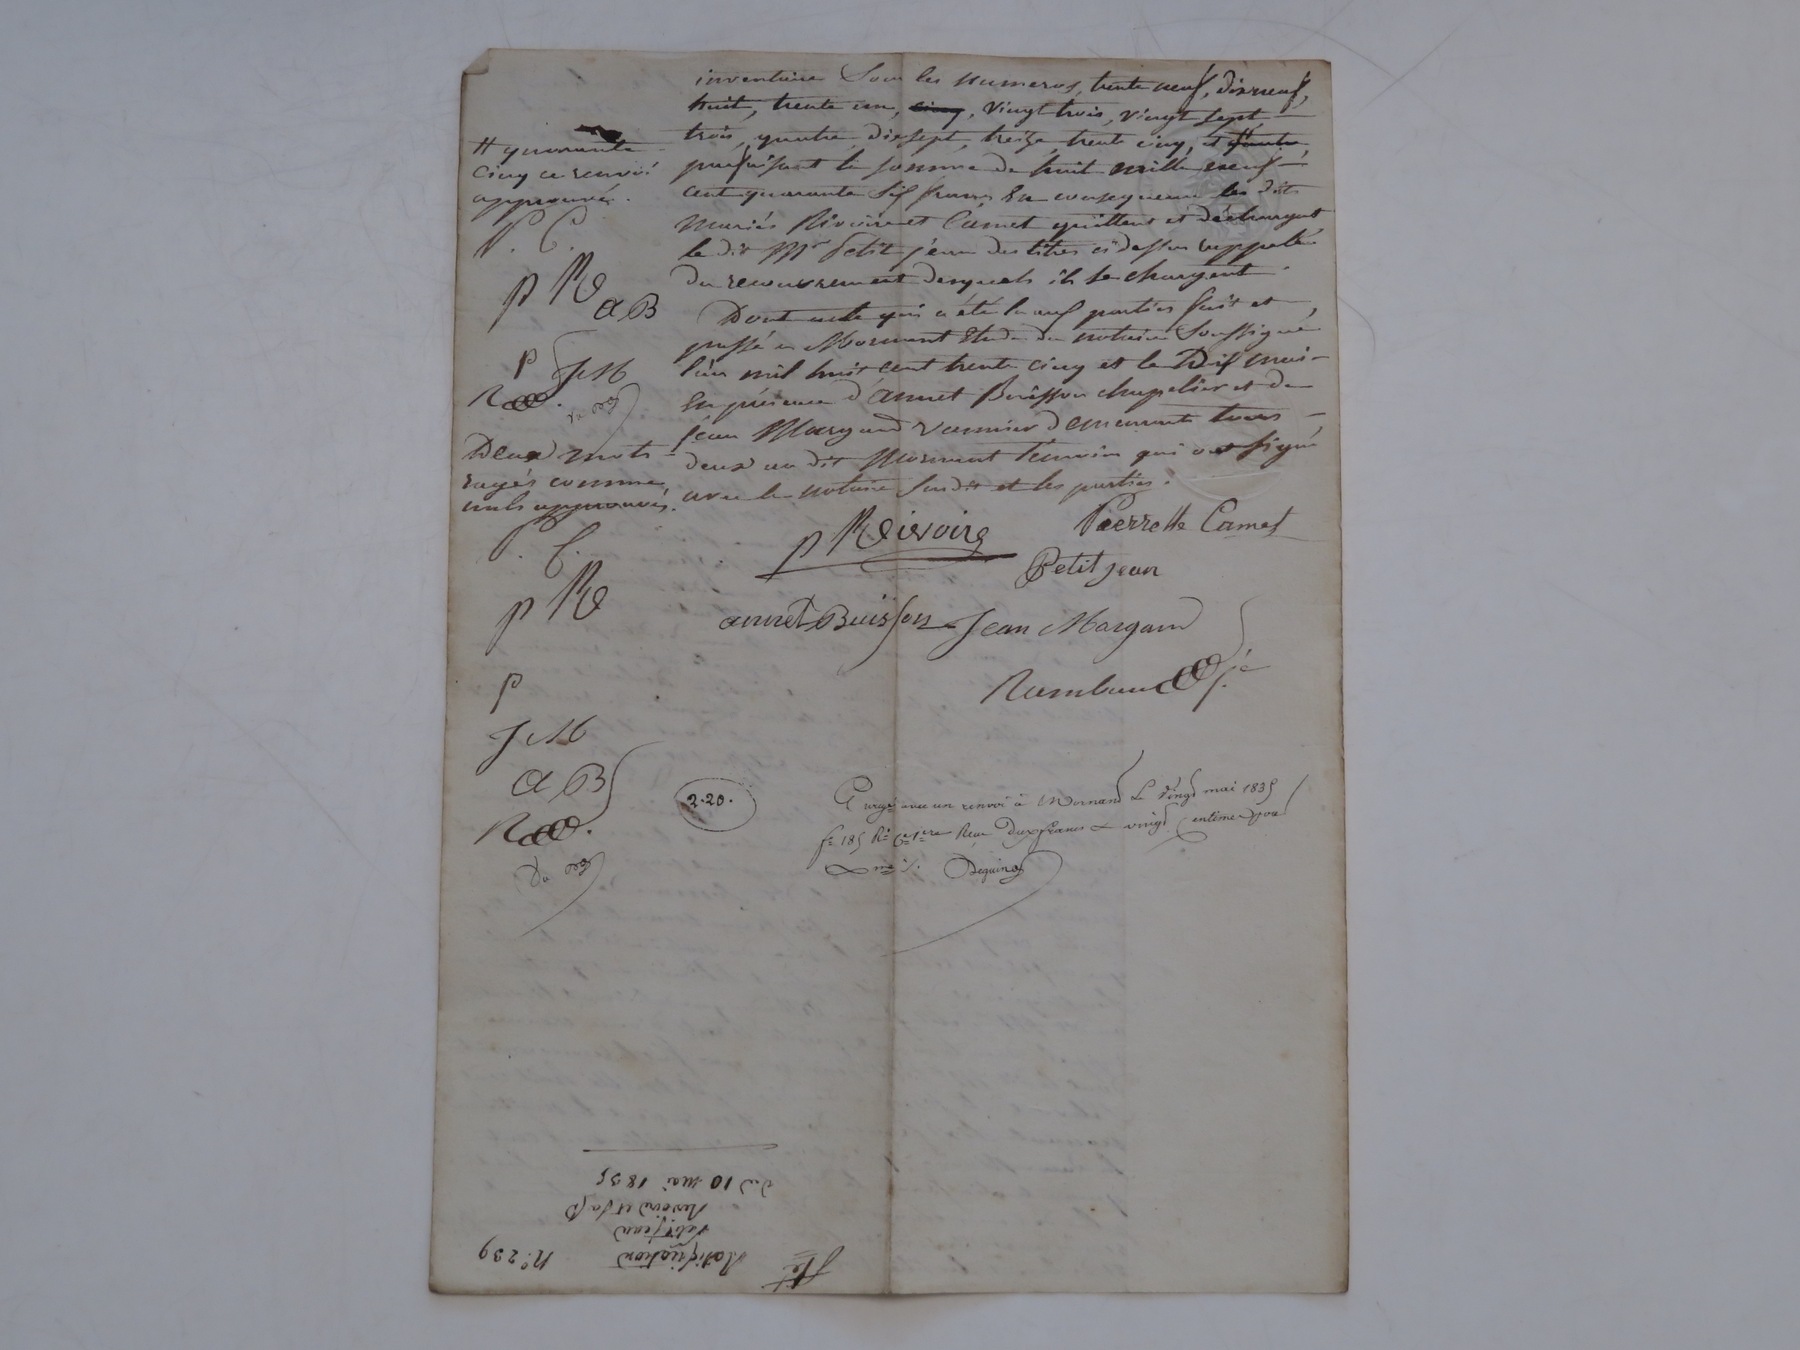 inventaire Sous les numeros, trente neuf, dixneuf,
huit, trente un, cinq, vingt trois, vingt sept,
trois, quatre, dixsept, treize, trente cinq, et
produisant la somme de huit mille neuf
cent quarante Six francs En consequence les dits
mariés Rivoire et Camet quittent et déchargent
le dit Mr Petit jean des titres cidessus rappelés
du recouvrement desquels ils se chargent.
Dont acte qui a été lu aux parties fait et
passé a Mornant Etude du notaire Soussigné
l'an mil huit cent trente cinq et le Dix mai
En présence d'annet Buisson chapelier et de
jean Margand vannier demeurants tous
deux au dit Mornant témoins qui ont signé
avec le notaire Susdit et les parties.
# quarante
cinq ce renvoi
approuvé.
P. C.
p R
a B
P
J M
R
Deux mots
rayés comme
nuls approuvés.
P. C.
p R
P
J M
a B
R
p Rivoire
Pierrette Camet
Petit jean
annet Buisson
Jean Margand
Rambaud
2.20.
avec un renvoi à Mornant Le vingt mai 1835
fo 185 Ro Reçu Deux francs vingt centimes pour
Deguine
Nº 239
Ratification
Petitjean
Rivoire et sa
Du 10 mai 1835